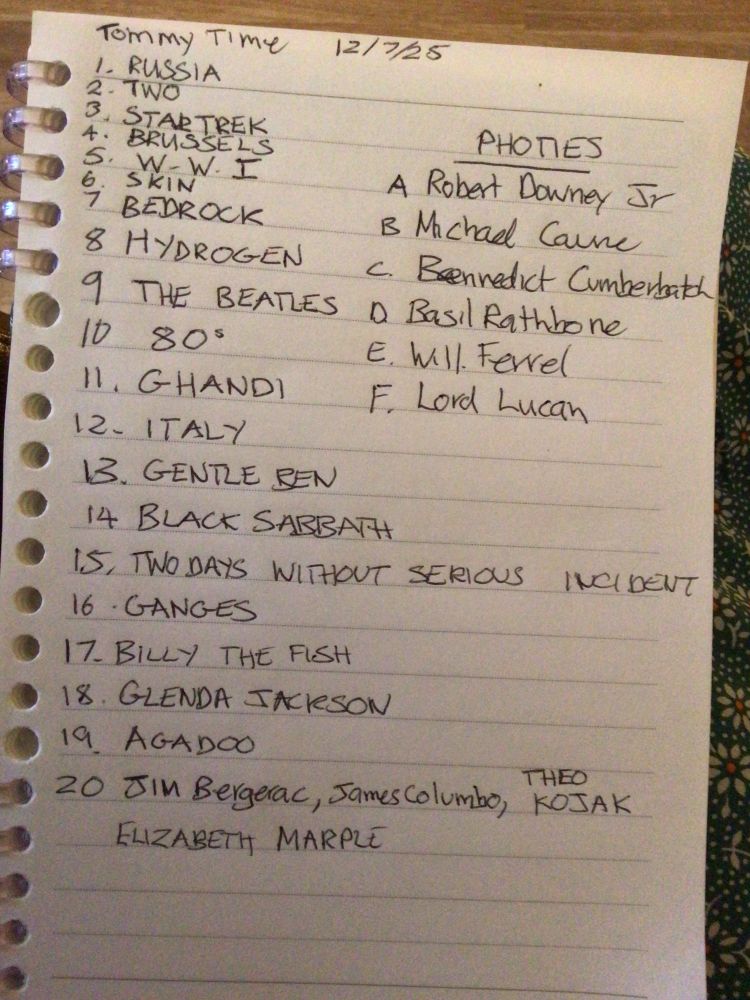 Tommy Time 12/7/25
1. RUSSIA
2. TWO
3. STAR TREK
4. BRUSSELS
5. W.W. I
6. SKIN
7 BEDROCK
8 HYDROGEN
9 THE BEATLES
10 80s
11. GHANDI
12- ITALY
13. GENTLE BEN
14 BLACK SABBATH
15. TWO DAYS WITHOUT SERIOUS INCIDENT
16. GANGES
17- BILLY THE FISH
18. GLENDA JACKSON
19. AGADOO
20 Jim Bergerac, James Columbo, THEO KOJAK
ELIZABETH MARPLE
PHOTIES
A Robert Downey Jr
B Michael Caine
C. Bennedict Cumberbatch
D. Basil Rathbone
E. Will Ferrel
F. Lord Lucan